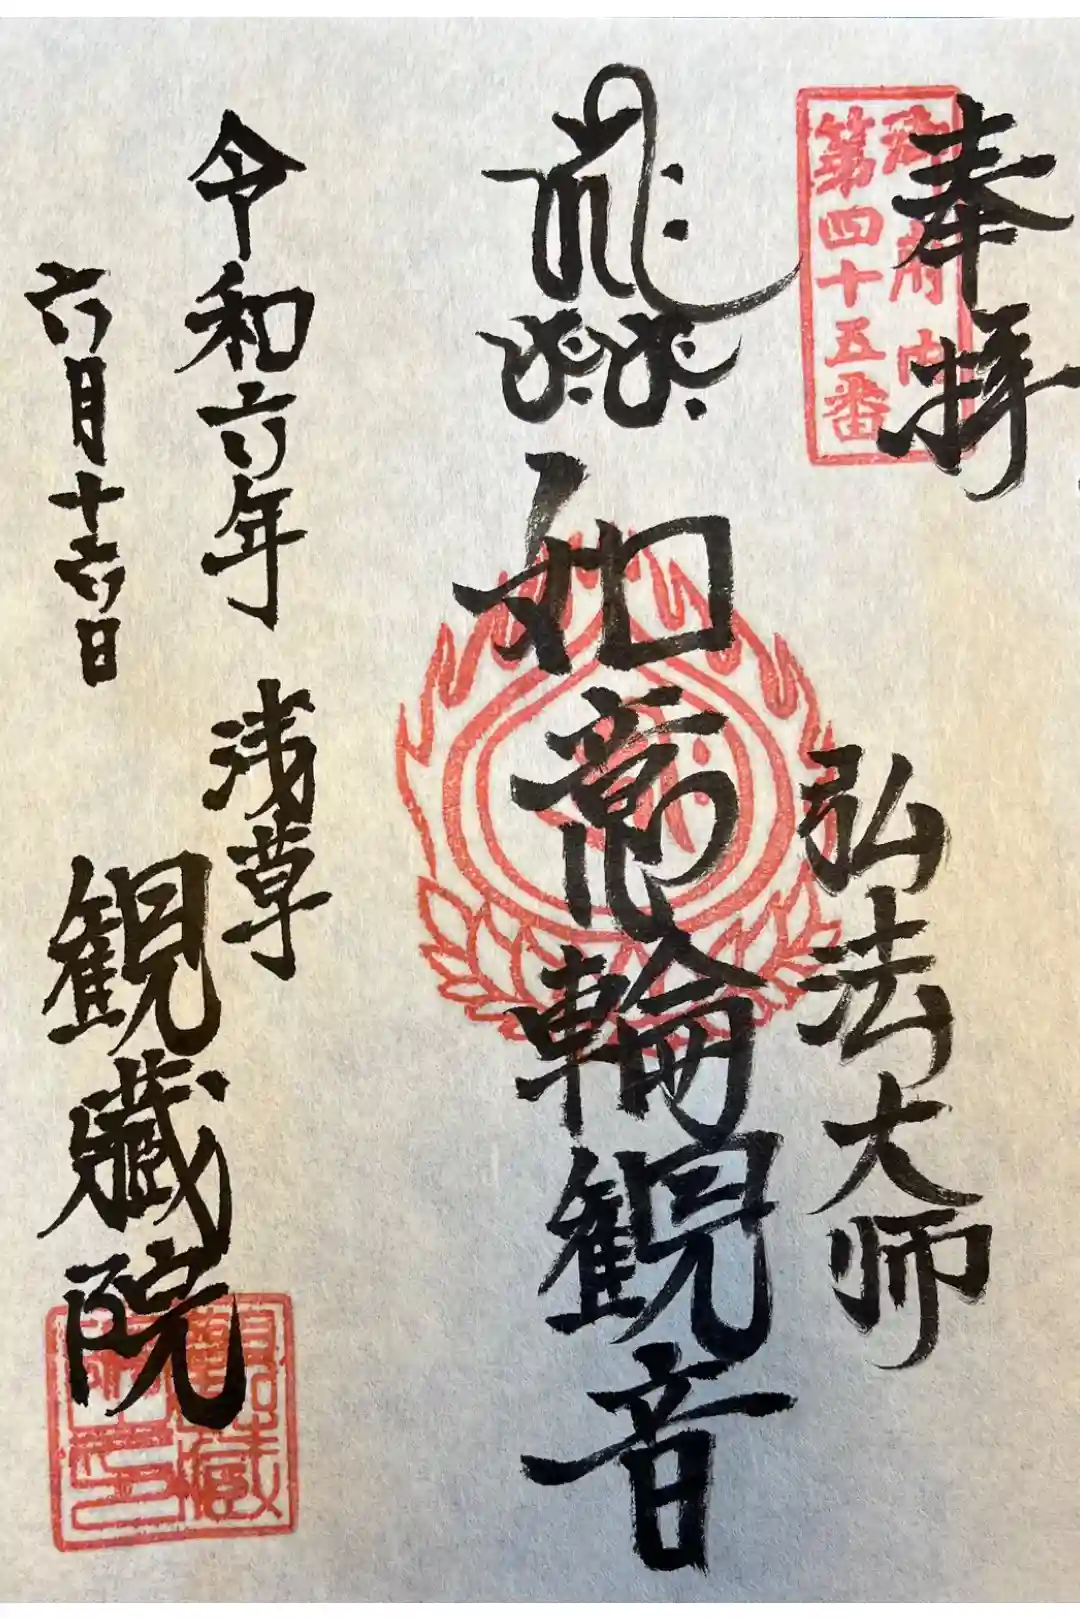 奉拝
御府内
第四十五番
弘法大師
如意輪観音
令和六年
浅草
六月十六日
観蔵院